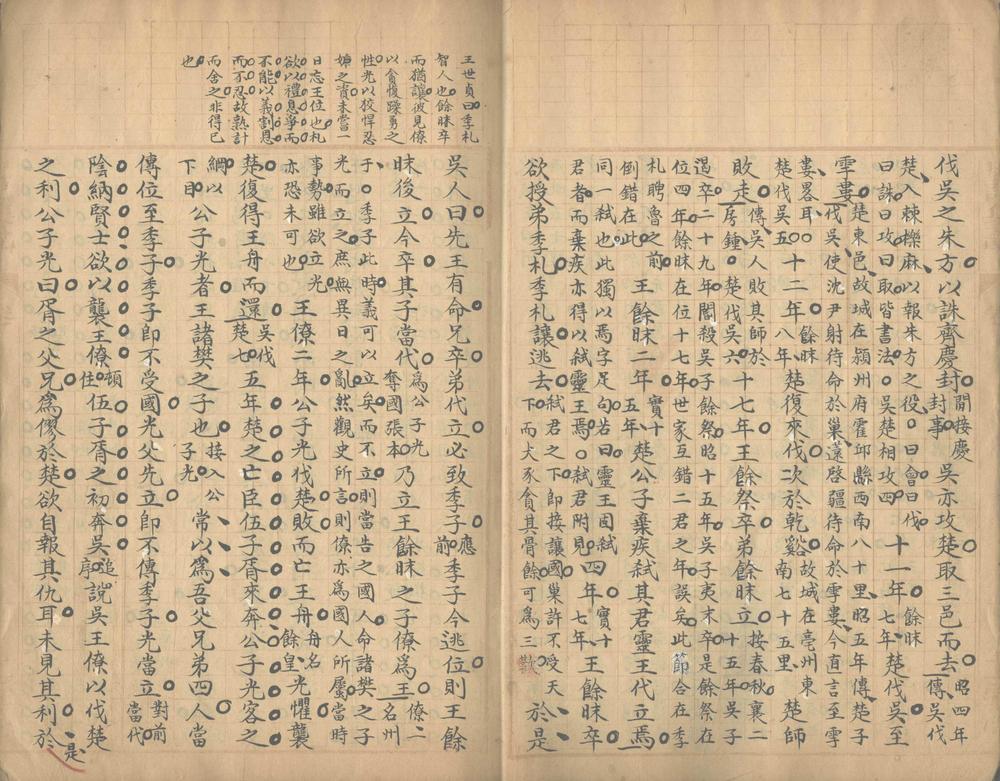 伐吳之朱方以誅齊慶封間接慶封事吳亦攻楚取三邑而去昭四年傳吳伐
楚入棘櫟麻以報朱方之役曰會曰伐曰誅曰攻曰取皆書法吳楚相攻四十一年餘眛七年楚伐吳至
雩婁楚東邑故城在潁州府霍邱縣西南八十里昭五年傳楚子伐吳使沈尹射待命於巢薳啓疆待命於雩婁今直言至雩
婁畧耳楚伐吳五十二年餘眛八年楚復來伐次於乾谿故城在亳州東南七十五里楚師
敗走傳吳人敗其師於房鍾楚伐吳六十七年王餘祭卒弟餘眛立按春秋襄二十五年吳子
遏卒二十九年閽殺吳子餘祭昭十五年吳子夷末卒是餘祭在位四年餘眛在位十七年世家互錯二君之年誤矣此節合在季
札聘魯之前倒錯在此王餘眛二年實十五年楚公子棄疾弒其君靈王代立焉
同一弒也此獨以焉字足句若曰靈王固弒君者而棄疾亦得以弒靈王焉弒君附見四年實十七年王餘眛卒
欲授弟季札季札讓逃去弒君之下即接讓國巢許不受天下而犬豕貪其骨餘可爲三歎於是
王世貞曰季札
智人也餘眛卒
而猶讓彼見僚
以貪愎躁勇之
性光以狡悍忍
婟之資未嘗一
日忘王位也札
欲以禮息爭而
不能以義割恩
而不忍故熟計
而舍之非得已
也
吳人曰先王有命兄卒弟代立必致季子應前季子今逃位則王餘
眛後立今卒其子當代爲公子光奪國張本乃立王餘眛之子僚爲王僚二名州
于季子此時義可以立矣而不立則當告之國人命諸樊之子光而立之庶無異日之亂然觀史所言則僚亦爲國人所屬當時
事勢雖欲立光亦恐未可也王僚二年公子光伐楚敗而亡王舟舟名餘皇光懼襲
楚復得王舟而還吳伐楚七五年楚之亡臣伍子胥來奔公子光客之
綱以下申公子光者王諸樊之子也接入公子光常以爲吾父兄弟四人當
傳位至季子季子即不受國光父先立即不傳季子光當立對前當代
陰納賢士欲以襲王僚頓住伍子胥之初奔吳追序說吳王僚以伐楚
之利公子光曰胥之父兄爲僇於楚欲自報其仇耳未見其利於是